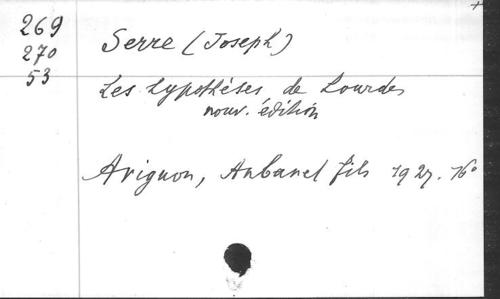 269
270
53
Serre (Joseph)
Les hypothèses de Lourdes
nouv. édition
Avignon, Aubanel fils 1927. 16°